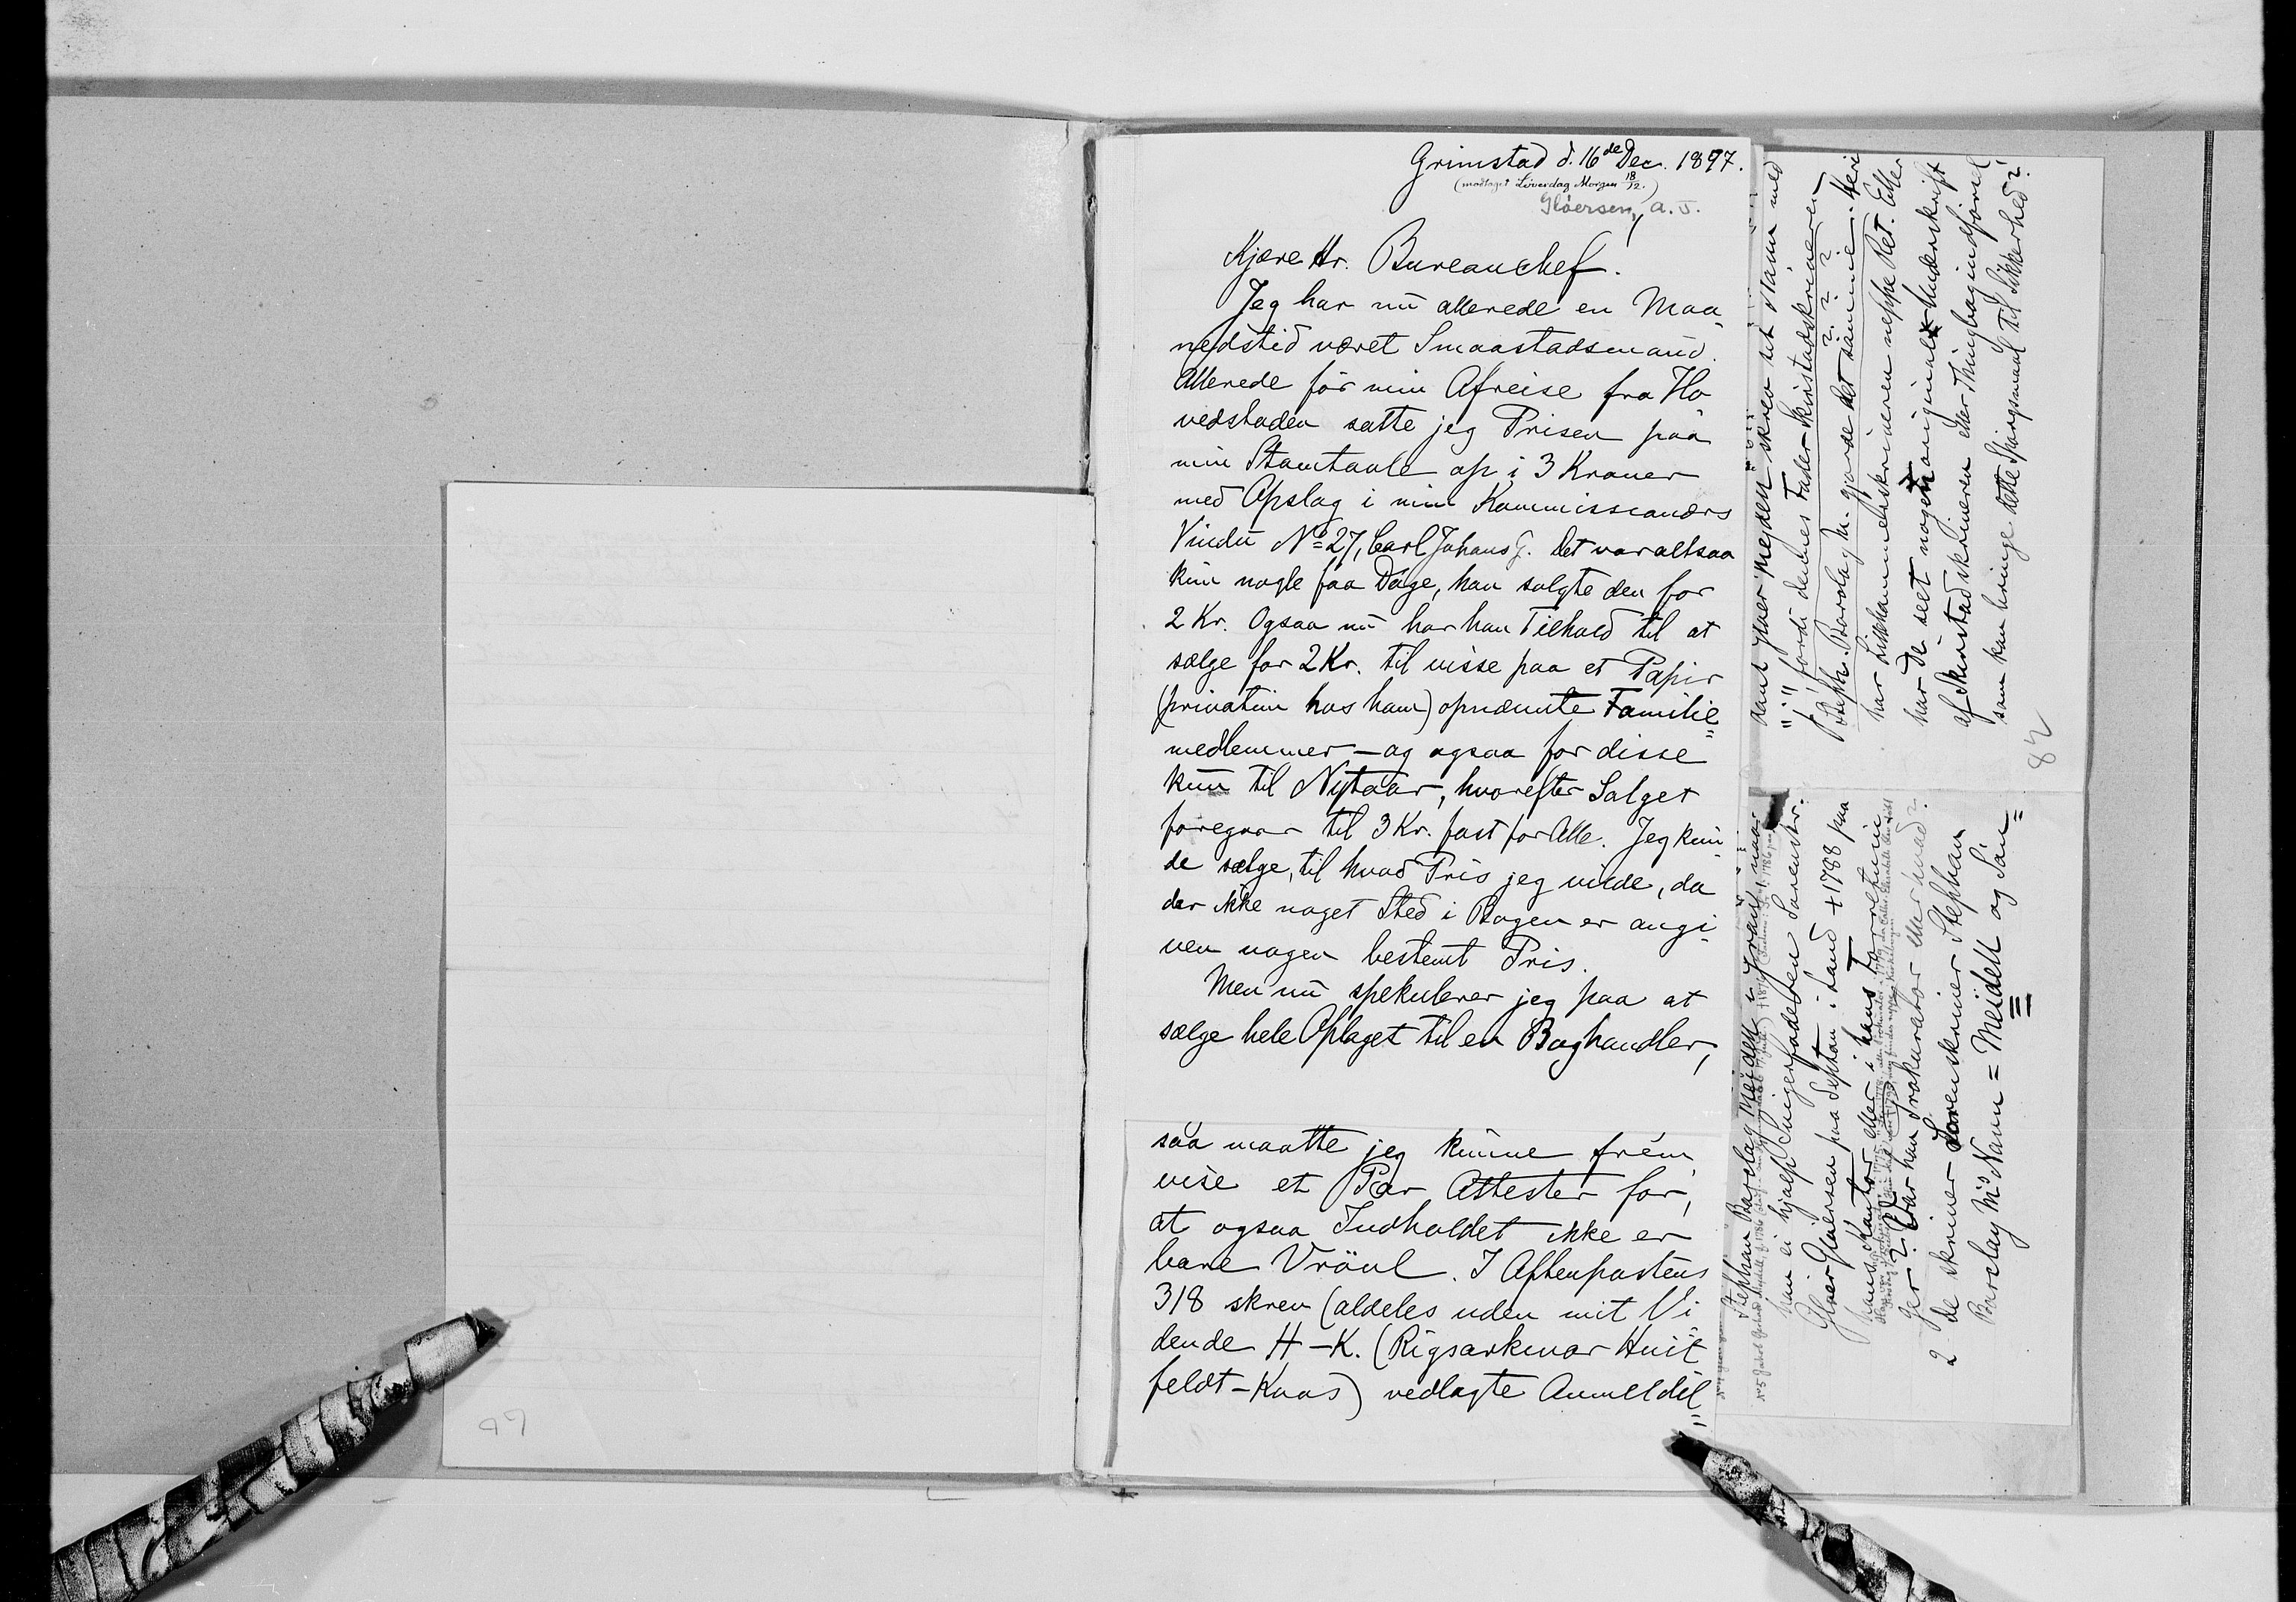 Grimstad d. 16de Dec. 1897.
(modtaget Löverdag Morgen 18/12.)
Glöersen, A. J.
Kjære Hr. Bureauchef.
Jeg har nu allerede en Maa
nedstid været Smaastadsmand.
Allerede för min Afreise fra Ho
vedstaden satte jeg Prisen paa
min Stamtavle op i 3 Kroner
med Opslag i min Kommissionærs
Vindu No 27, Carl Johans G. Det var altsaa
kun nogle faa Dage, han solgte den for
2 Kr. Ogsaa nu har han Tilhold til at
sælge for 2 Kr. til visse paa et Papir
(privatim hos ham) opnævnte Familie
medlemmer – og ogsaa for disse
kun til Nytaar, hvorefter Salget
foregaar til 3 Kr. fast for Alle. Jeg kun
de sælge, til hvad Pris jeg vilde, da
der ikke noget Sted i Bogen er angi
ven nogen bestemt Pris.
Men nu spekulerer jeg paa at
sælge hele Oplaget til en Boghandler,
saa maatte jeg kunne frem
vise et Par Attester for,
at ogsaa Indholdet ikke er
bare Vrövl. I Aftenpostens
318 skrev (aldeles uden mit Vi
dende H–K. (Rigsarkivar Huit
feldt-Kaas) vedlagte Anmeldel
Stephan Barclay Meidell
han ei hjalp Svigerfaderen Sorenskr.
Glöer Glöersen paa Sephton i Land + 1788 paa
hans Kontor eller i hans Forretnin
ger? Var han Prokurator eller hvad?
2 de skriver Sorenskriver Stephan
Barclay M's Navn = Meidell og Sön
skrev tit Navn med
fordi dennes Fader Skirstadskriveren
Steph. Barclay M. gjorde det samme. Heri
har Lillehammerskriveren neppe Ret. Eller
har De seet nogen original Underskrift
af Skirstadskriveren eller Thingbogindförsel
som kan bringe dette Spörgsmaal til Sikkerhed?
82